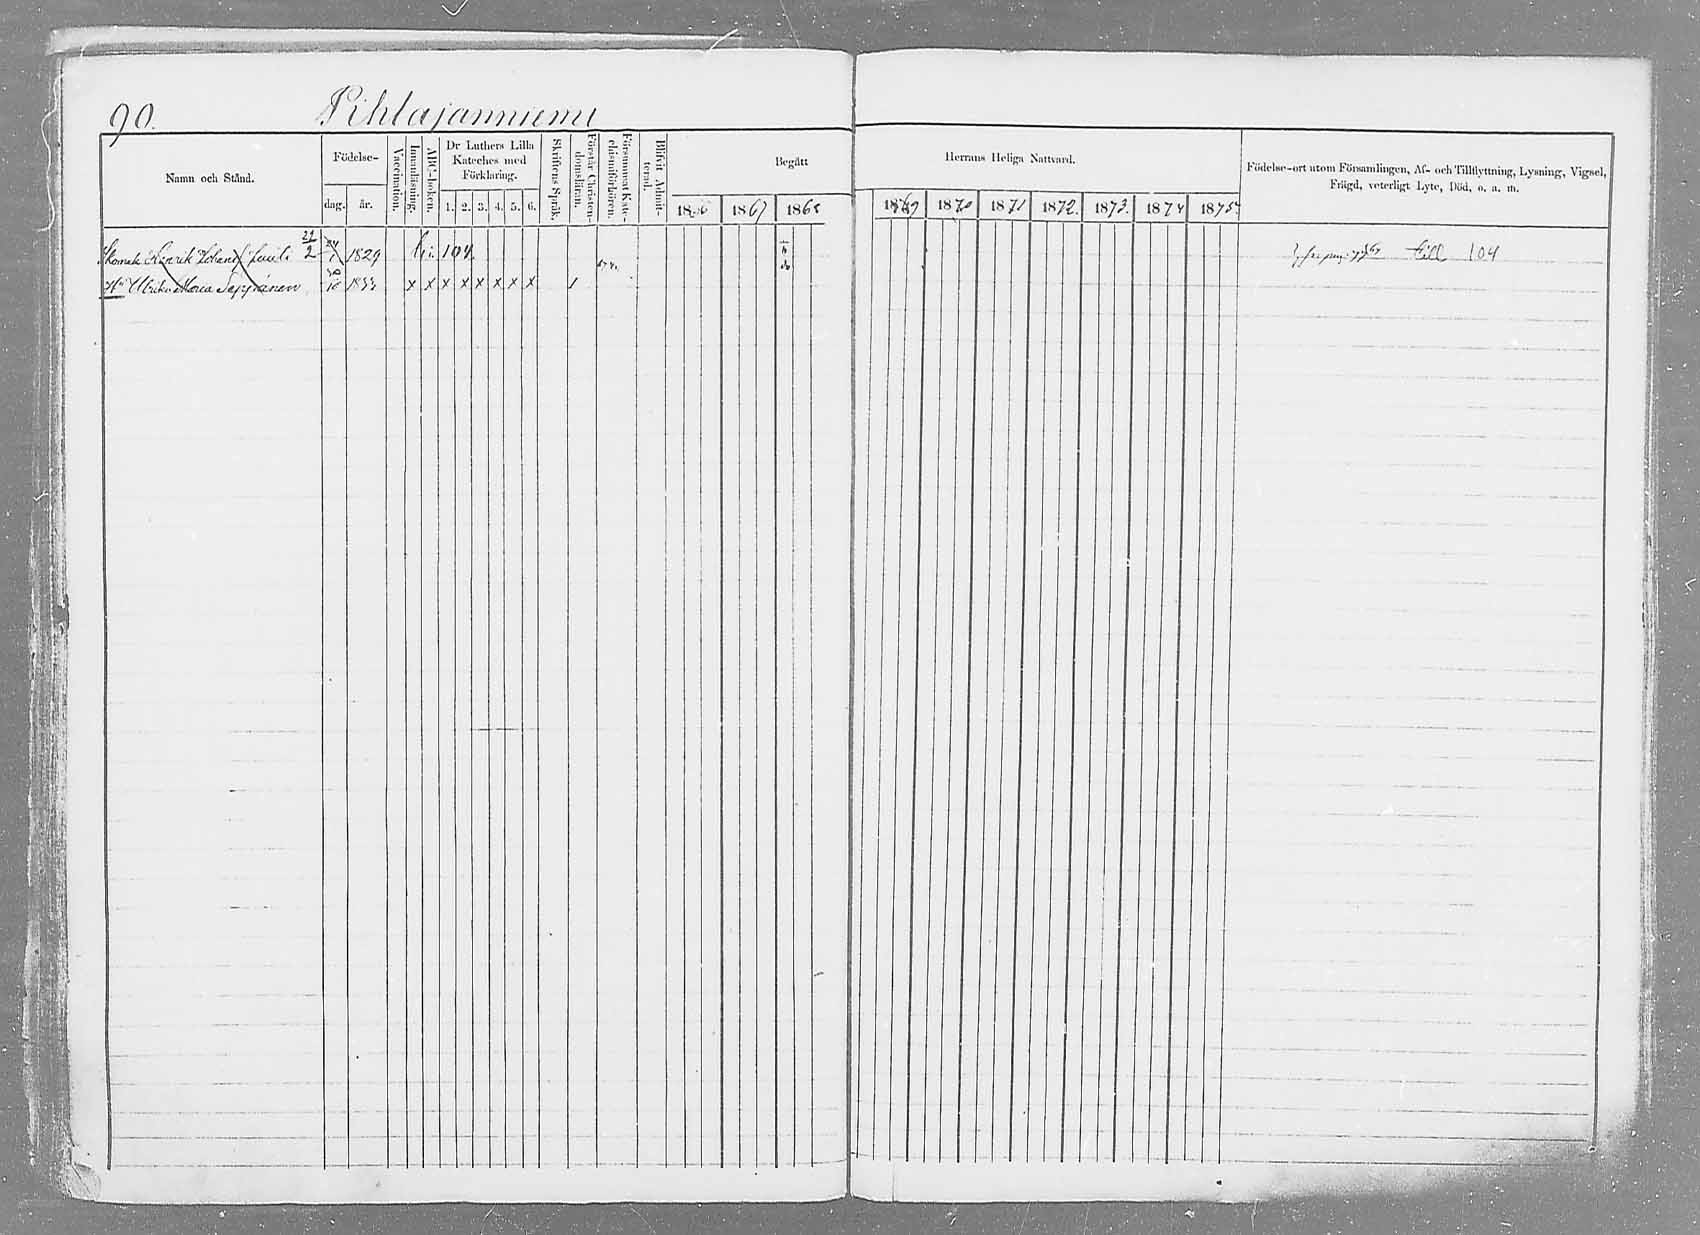 90. Pihlajanniemi
Namn och Stånd.
Födelse-
dag.
år.
Vaccination.
Innanläsning.
ABC-boken.
Dr Luthers Lilla
Kateches med
Förklaring.
1. 2. 3. 4. 5. 6.
Skriftens Språk.
Förstår Christen-
domsläran.
Försummat Kate-
chismiförhören.
Blifvit Admit-
terad.
Begått
Herrans Heliga Nattvard.
1866 1867 1868
1869 1870 1871 1872. 1873. 1874 1875.
Födelse-ort utom Församlingen, Af- och Tillflyttning, Lysning, Vigsel,
Frägd, veterligt Lyte, Död, o. a. m.
Henrik Johan 21/2 1829 till 104
Hu Ulrika Maria Seppänen 10 x x x x x x x x 1